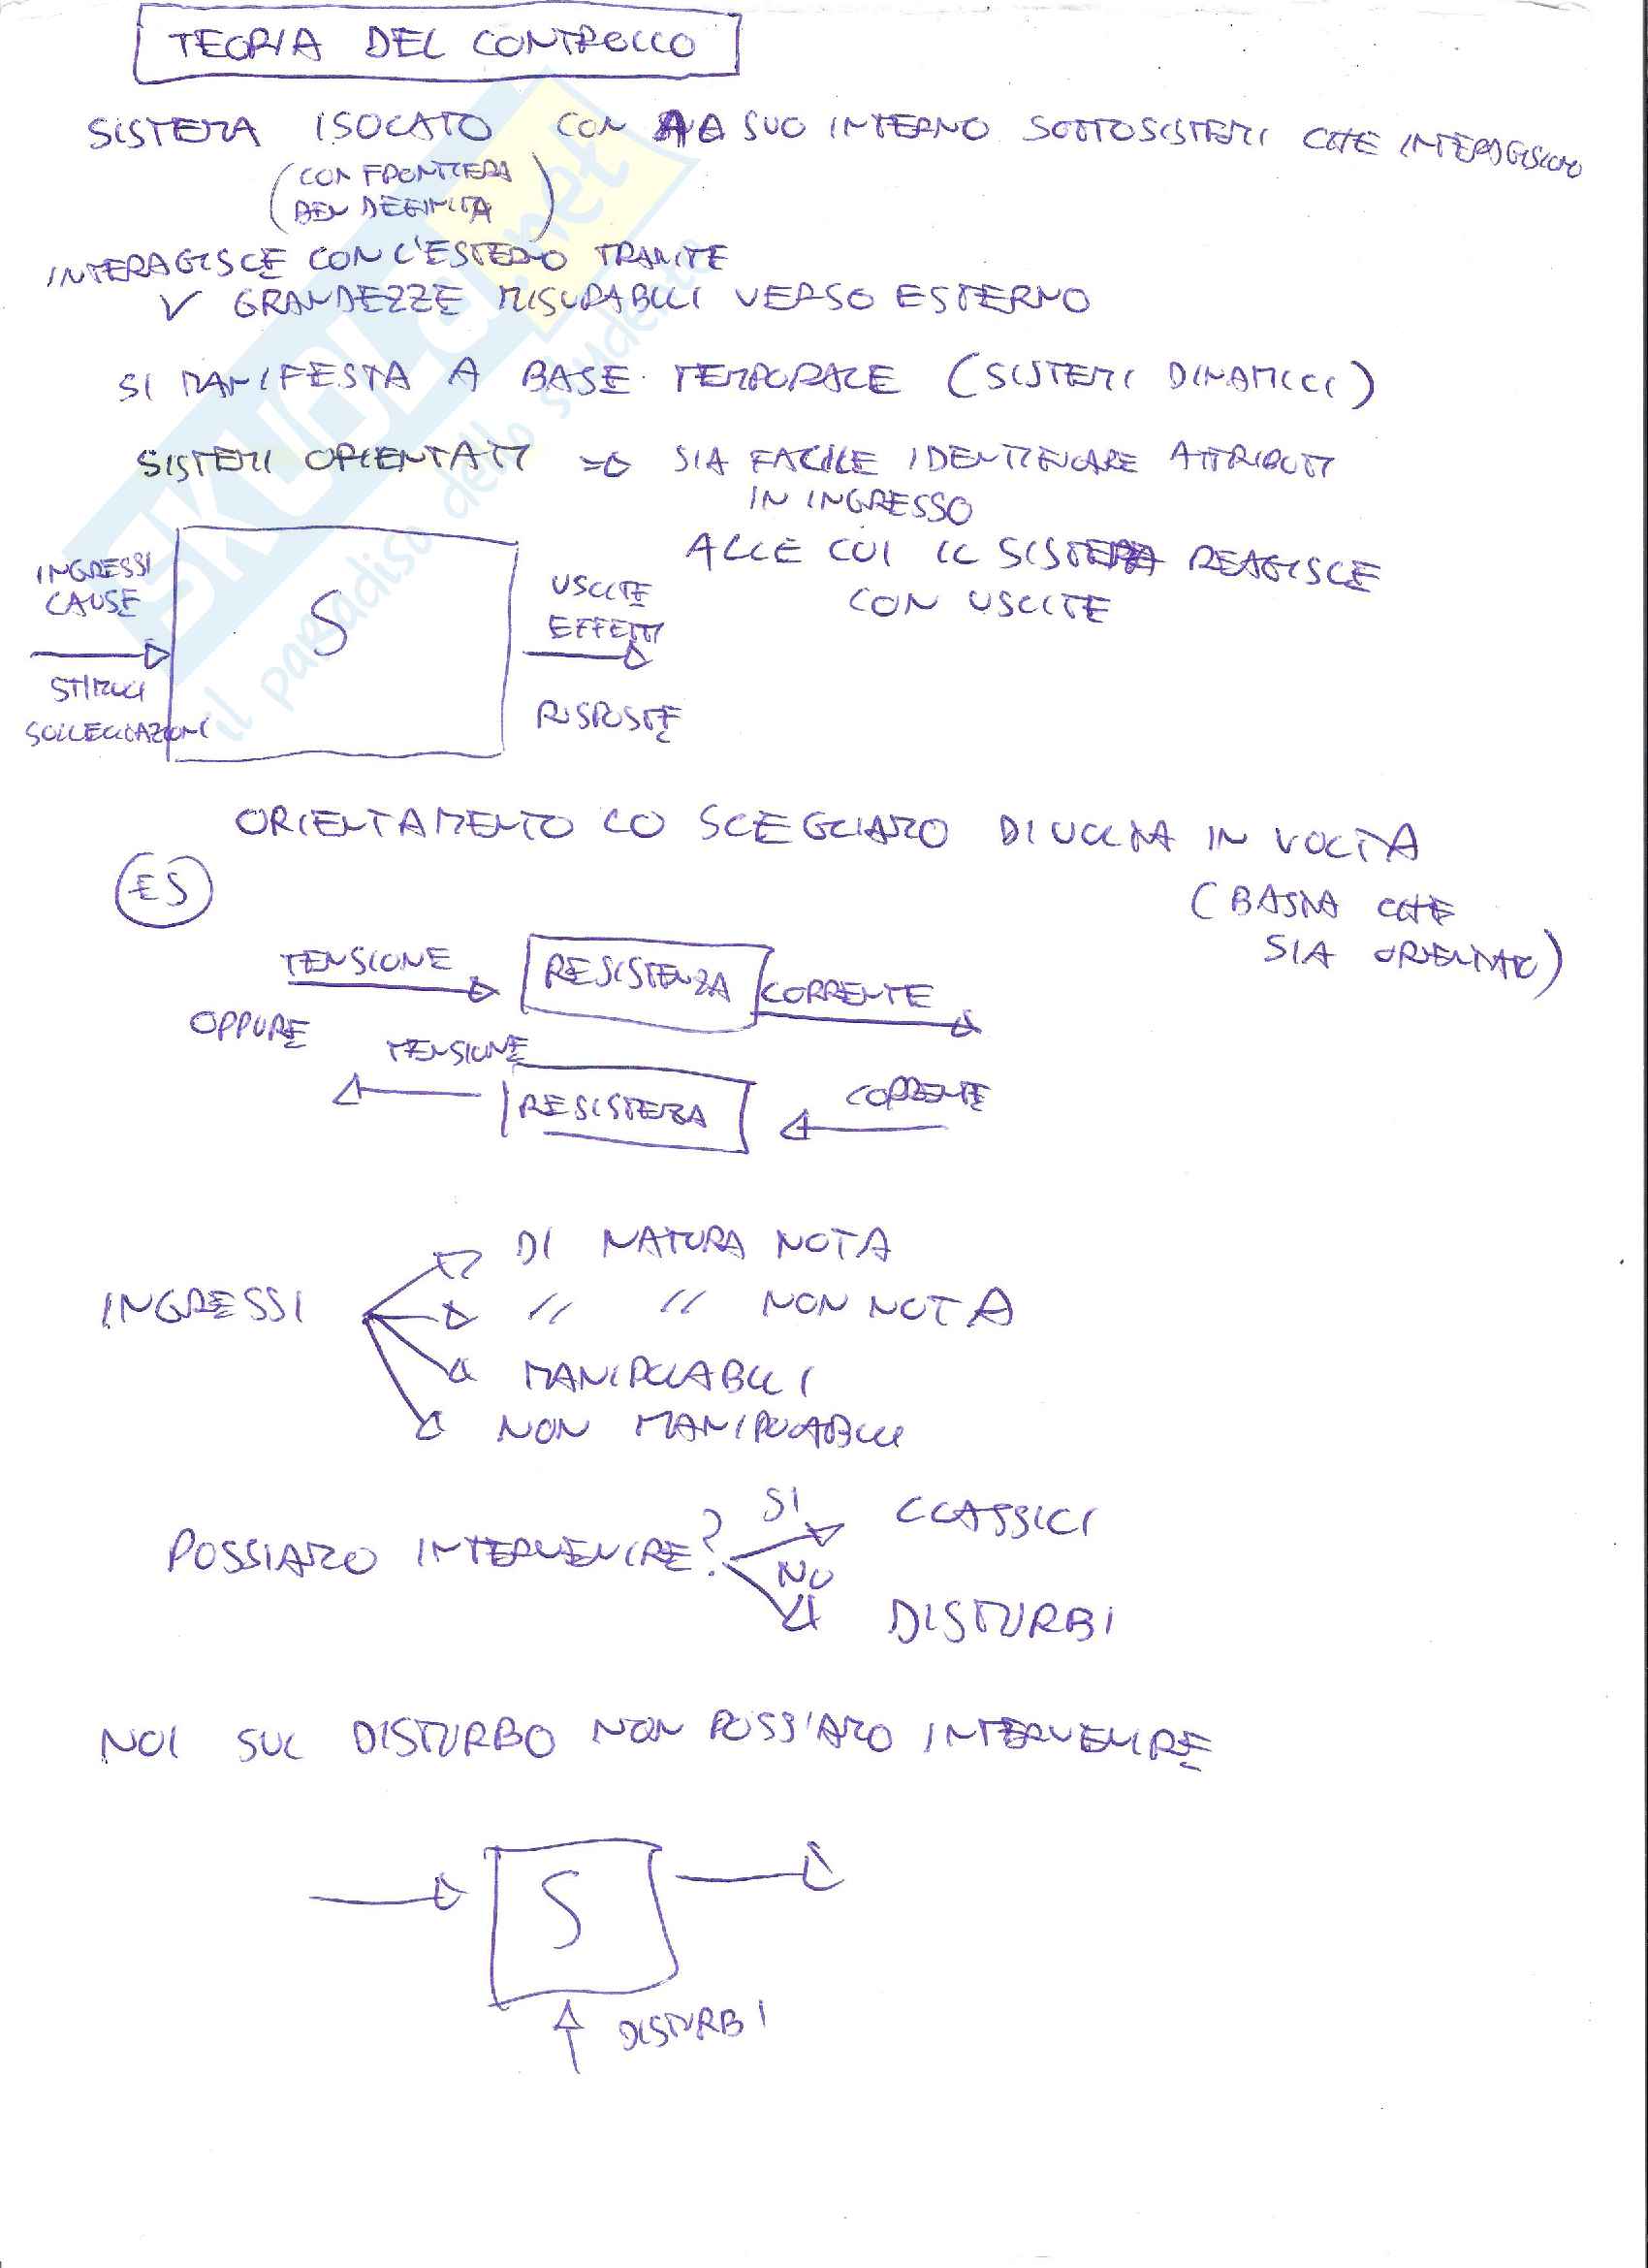 TEORIA DEL CONTROLLO
SISTEMA ISOLATO CON AL SUO INTERNO SOTTOSISTEMI CHE INTERAGISCONO
(CON FRONTIERA
BEN DEFINITA)
INTERAGISCE CON L'ESTERNO TRAMITE
✓ GRANDEZZE MISURABILI VERSO ESTERNO
SI MANIFESTA A BASE TEMPORALE (SISTEMI DINAMICI)
SISTEMI ORIENTATI => SIA FACILE IDENTIFICARE ATTRIBUTI
IN INGRESSO
ALLE CUI IL SISTEMA REAGISCE
CON USCITE
INGRESSI
CAUSE
STIMOLI
SOLLECITAZIONI
S
USCITE
EFFETTI
RISPOSTE
ORIENTAMENTO LO SCEGLIAMO DI VOLTA IN VOLTA
(BASTA CHE
SIA ORIENTATO)
ES
TENSIONE RESISTENZA CORRENTE
OPPURE
TENSIONE RESISTENZA CORRENTE
INGRESSI
DI NATURA NOTA
// // NON NOTA
MANIPOLABILI
NON MANIPOLABILI
POSSIAMO INTERVENIRE?
SI CLASSICI
NO DISTURBI
NOI SUL DISTURBO NON POSSIAMO INTERVENIRE
S
DISTURBI
SKUOLA.net
il paradiso dello studente